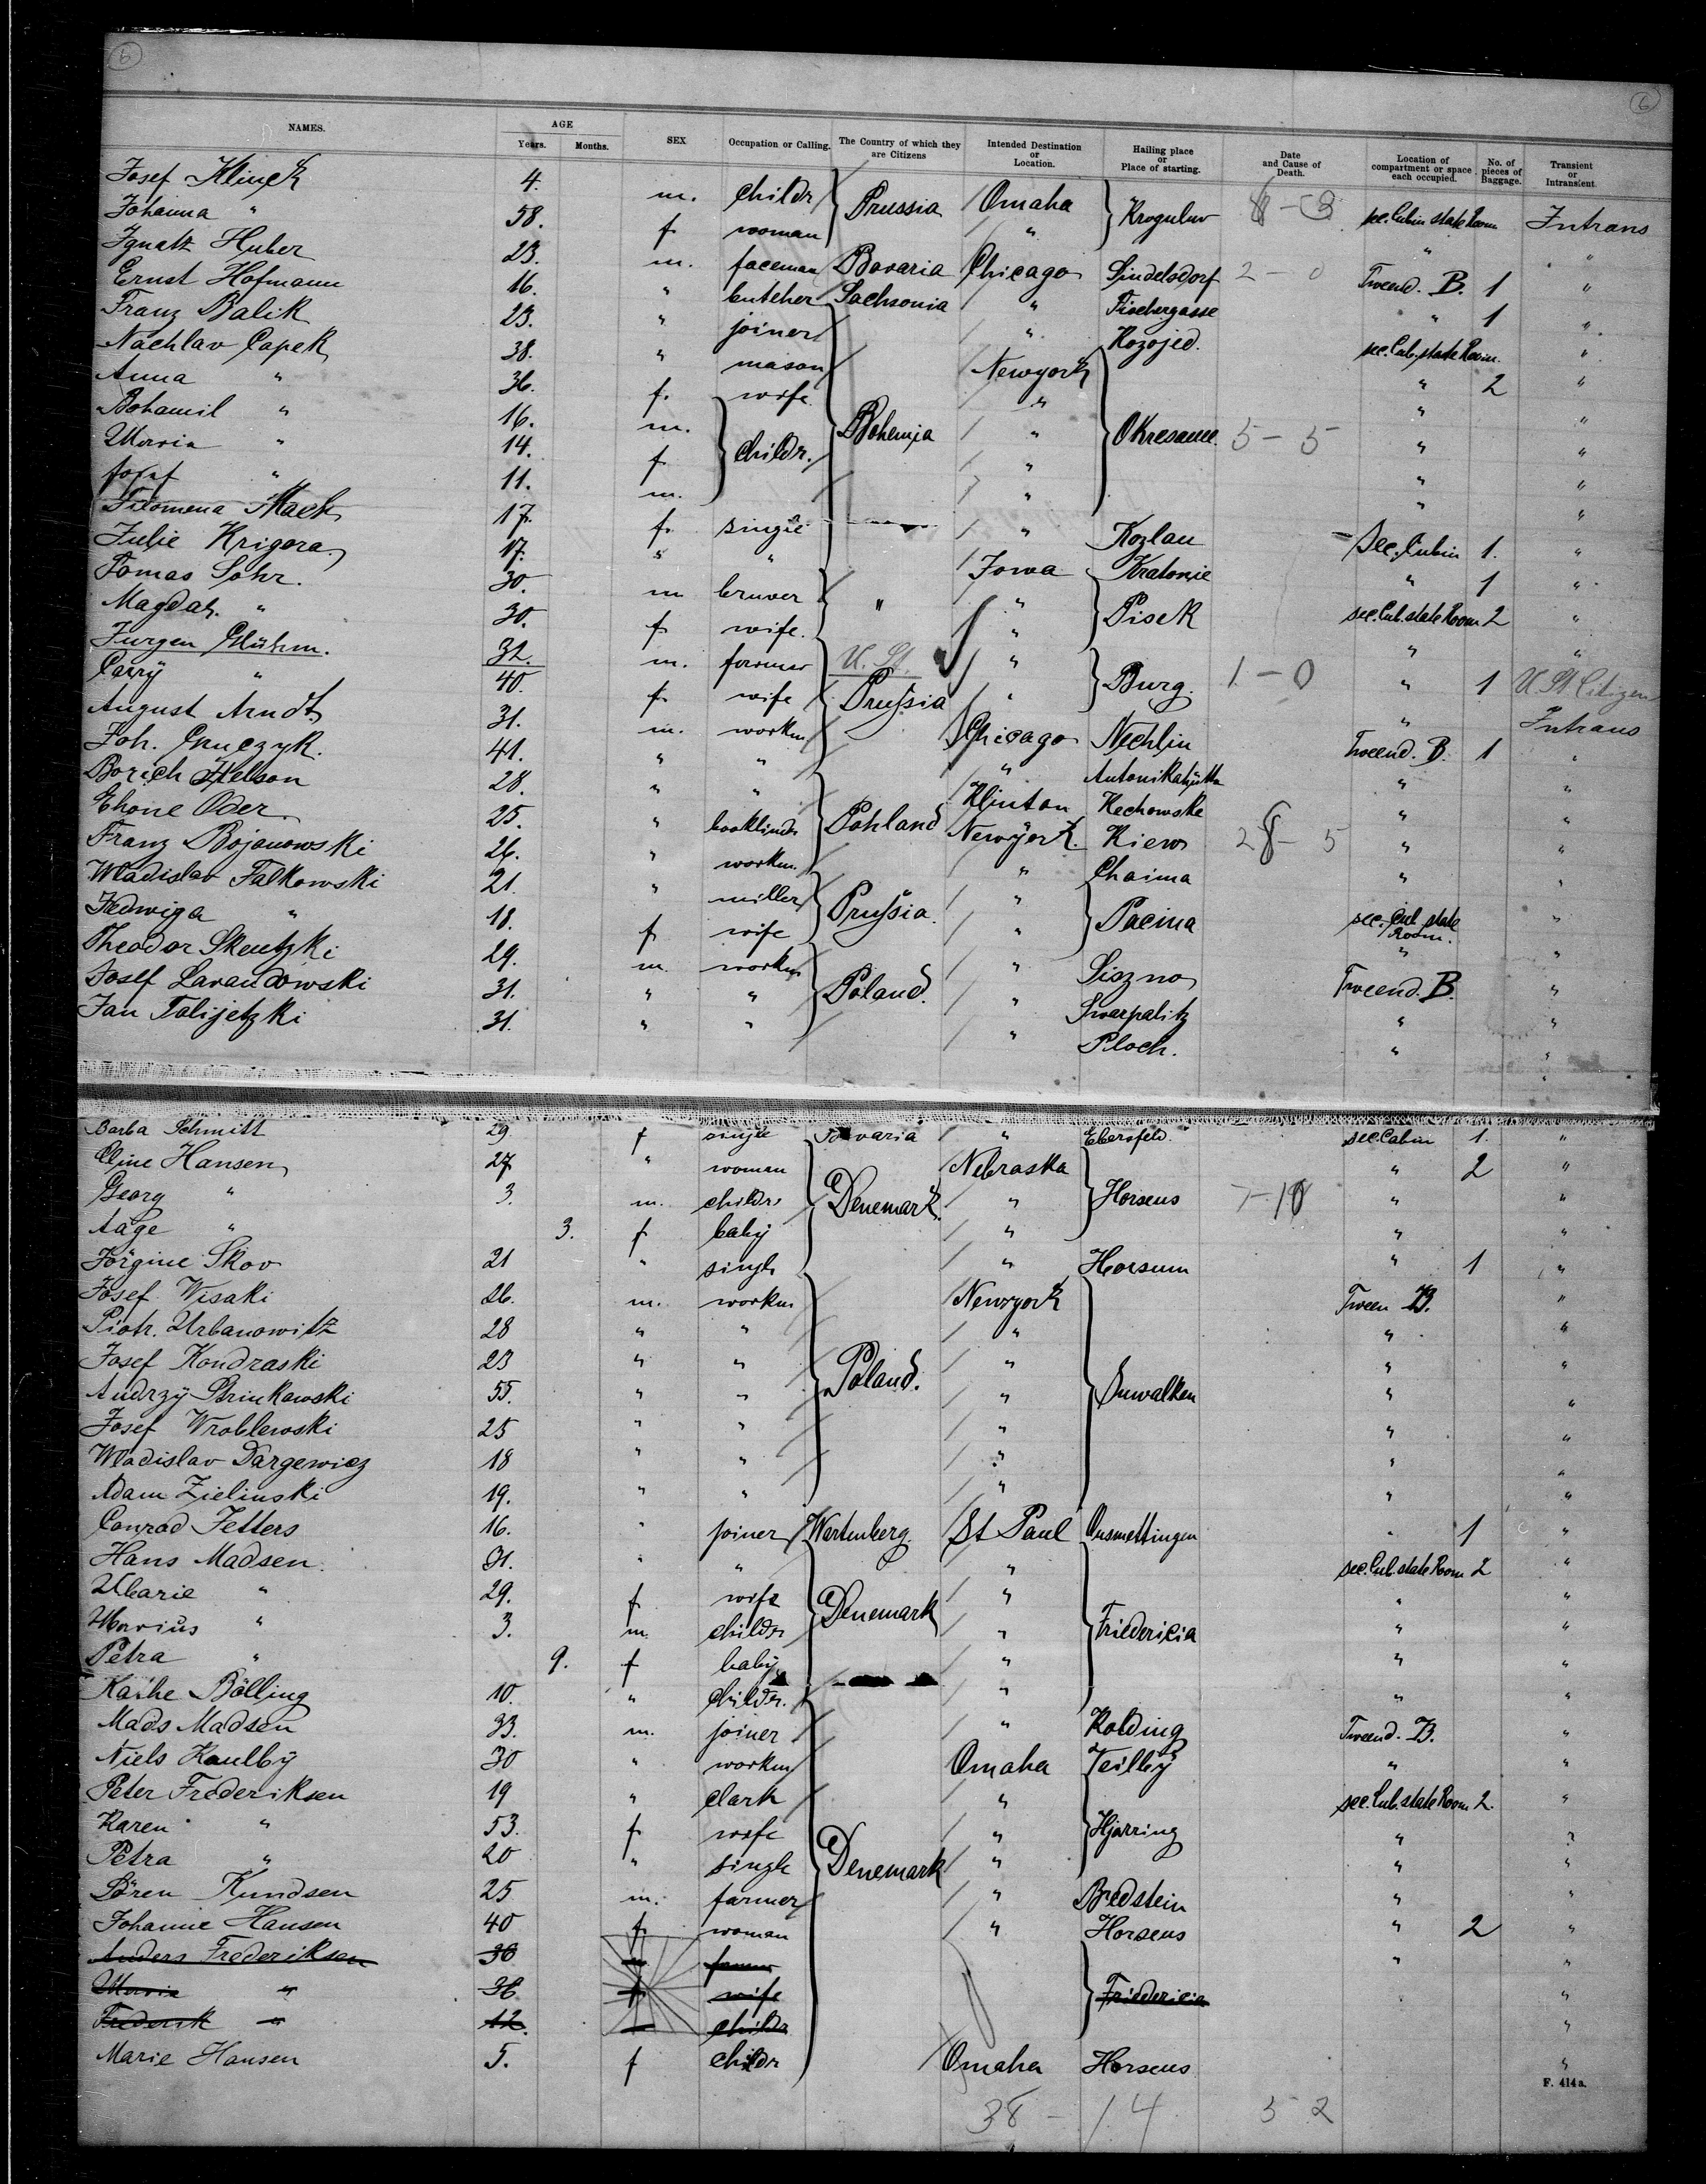 6 6
NAMES. AGE Years. Months. SEX Occupation or Calling. The Country of which they are Citizens Intended Destination or Location. Hailing place or Place of starting. Date and Cause of Death. Location of compartment or space each occupied. No. of pieces of Baggage. Transient or Intransient.
Josef Klinek 4. m. childr Prussia Omaha sec. Cabin state Room Intrans
Johanna " 58. f woman " " "
Ignatz Huber 23. m. Bavaria Chicago Sindelsdorf 2 - 0 Tweend. B. 1 "
Ernst Hofmann 16. " butcher Sachsonia " Fischergasse " 1 "
Franz Balik 23. " joiner " Kozojed. sec. Cab. state Room. "
Nachlav Capek 38. " mason Bohemia Newyork Okresanec 5 - 5 " 2 "
Anna " 36. f. wife " " "
Bohamil " 16. m. childr. " " "
Maria " 14. f " " "
Josef " 11. m. " " "
Filomena Mach 17. f. single " Kozlau Sec. Cabin 1. "
Julie Krigora 17. " " Iowa Kratonie " 1 "
Tomas Sohr. 30. m bruver " " Pisek sec. Cab. state Room 2 "
Magdal. " 30. f. wife. " " "
Jurgen Glühm. 32. m. farmer U. St. " Burg. 1 - 0 " 1 U. St. Citizen
Carry " 40. f. wife Prussia " " Intrans
August Arndt 31. m. workm Chicago Nechlin Tweend. B. 1 "
Joh. 41. " " " Antonikahütte " "
Borich Helson 28. " " Pohland Klinton Kechowske " "
Ehone Oder. 25. " bookbinder Newyork. Kiew 28 - 5 " "
Franz Bojanowski 26. " workm. " Chaima " "
Wladislav Falkowski 21. " miller Prussia. " Pacina sec. Cab. state Room. "
Hedwiga " 18. f wife " " "
Theodor Skeutzki 29. m. workm Poland. " Siozno Tweend. B. "
Josef Lavandowski 31. " " " Swarpalitz " "
Jan Talijetzki 31. " " " Plock. " "
Barba Schmitt 29 f single Bavaria " Ebersfeld. sec. Cabin 1. "
Cline Hansen 27 " woman Denemark. Nebraska Horsens 7 - 10 " 2 "
Georg " 3. m. childr " " "
Aage " 3. f baby " " "
Jörgine Skov 21 " single " Horsum " 1 "
Josef Wisaki 26. m. workm Poland. Newyork Suwalken Tween B. "
Piotr. Urbanowitz 28 " " " " "
Josef Kondraski 23 " " " " "
Andrzy Strinkawski 55. " " " " "
Josef Wroblewski 25 " " " " "
Wladislav Dargewicz 18 " " " " "
Adam Zielinski 19. " " " " "
Conrad Fetters 16. " joiner Wertenberg. St Paul Onsmettingen " 1 "
Hans Madsen. 31. " " Denemark " Friedericia sec. Cab. state Room 2 "
Marie " 29. f wife " " "
Marius " 3. m. childr " " "
Petra " 9. f baby " " "
Kathe Bölling 10. " childr. " " "
Mads Madsen 33. m. joiner Denemark " Kolding Tweend. B. "
Niels Kaulby 30 " workm Omaha Veilby " "
Peter Frederiksen 19 " clark " Hjørring sec. Cab. state Room 2. "
Karen " 53. f wife " " "
Petra " 20 " single " " "
Sören Kundsen 25 m. farmer " Bredstein " "
Johanne Hansen 40 f. woman " Horsens " 2 "
Anders Frederiksen 36 m farmer Friedericia " "
Maria " 36 f wife "
Frederik " 12. childr "
Marie Hansen 5. f childr Omaha Horsens "
F. 414 a.
38 - 14 5 2